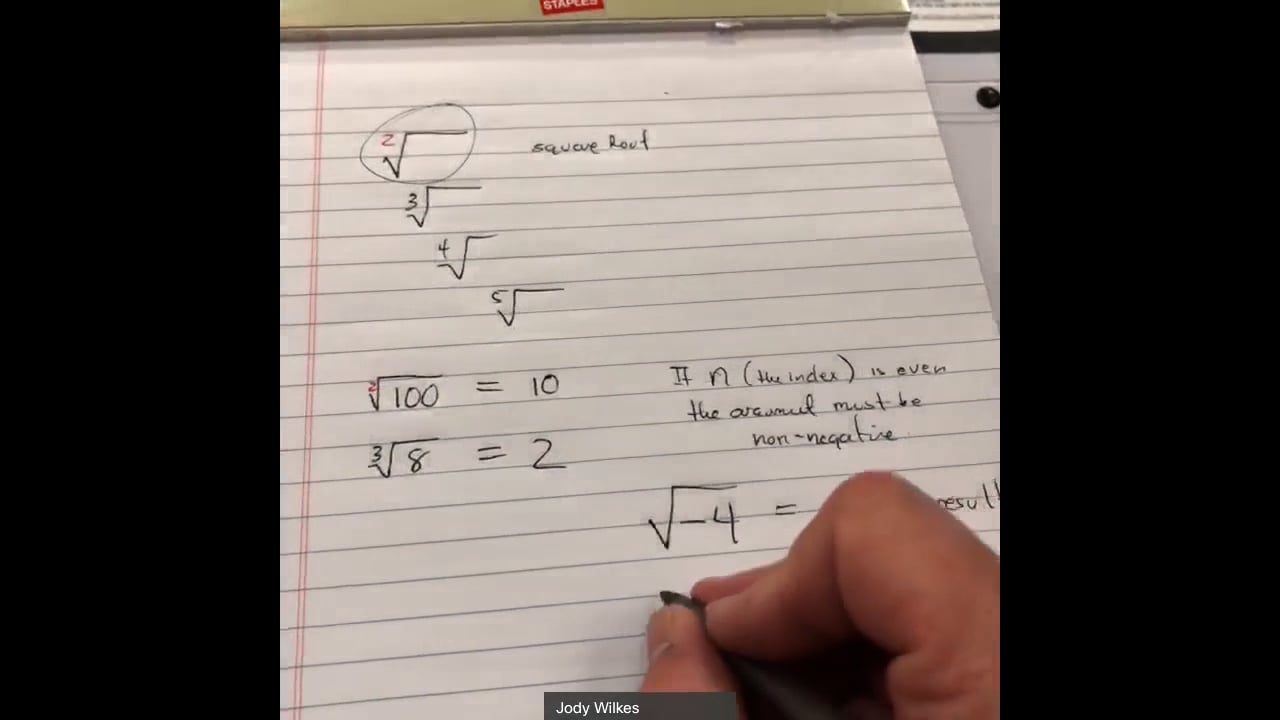 STAPLES
²√ square Root
³√
⁴√
⁵√
²√100 = 10
³√8 = 2
If n (the index) is even
the must be
non-negative
√-4 = result
Jody Wilkes